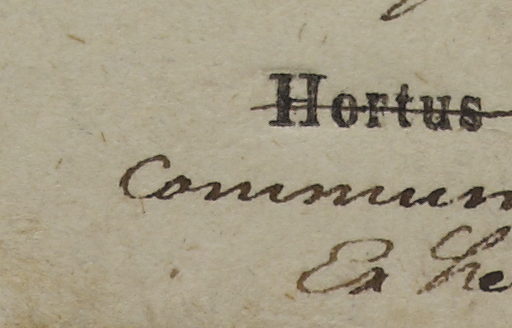 Hortus
Commun
Ex he